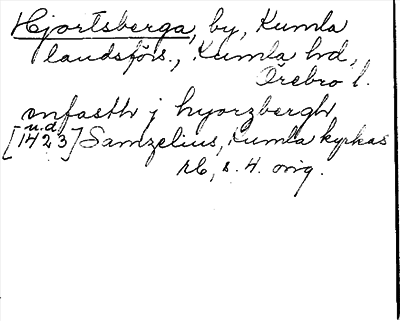 Hjortsberga, by, Kumla
landsförs., Kumla hd,
Örebro l.
onfasth j hyorzbergh
u.d.
[1423] Samzelius, Kumla kyrkas
rb, s. 4. orig.